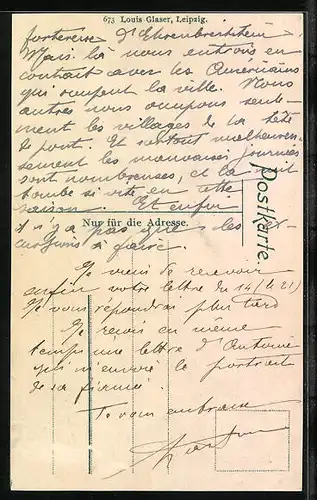 673 Louis Glaser, Leipzig.
forteresse d'Ehrenbreitstein
Mais là nous entrons en
contact avec les Américains
qui occupent la ville. Nous
autres nous occupons seule-
ment les villages de la tête
de pont. Et surtout malheureu-
sement les mauvaises journées
sont nombreuses, et la nuit
tombe si vite en cette
saison. Et enfin
il n'y a pas que les ex-
cursions à faire.
Postkarte
Nur für die Adresse.
Je viens de recevoir
enfin votre lettre du 14 (le 21)
Je vous répondrai plus tard
Je reçois en même
temps une lettre d'Antoine
qui m'envoie le portrait
de sa fiancée.
Je vous embrasse